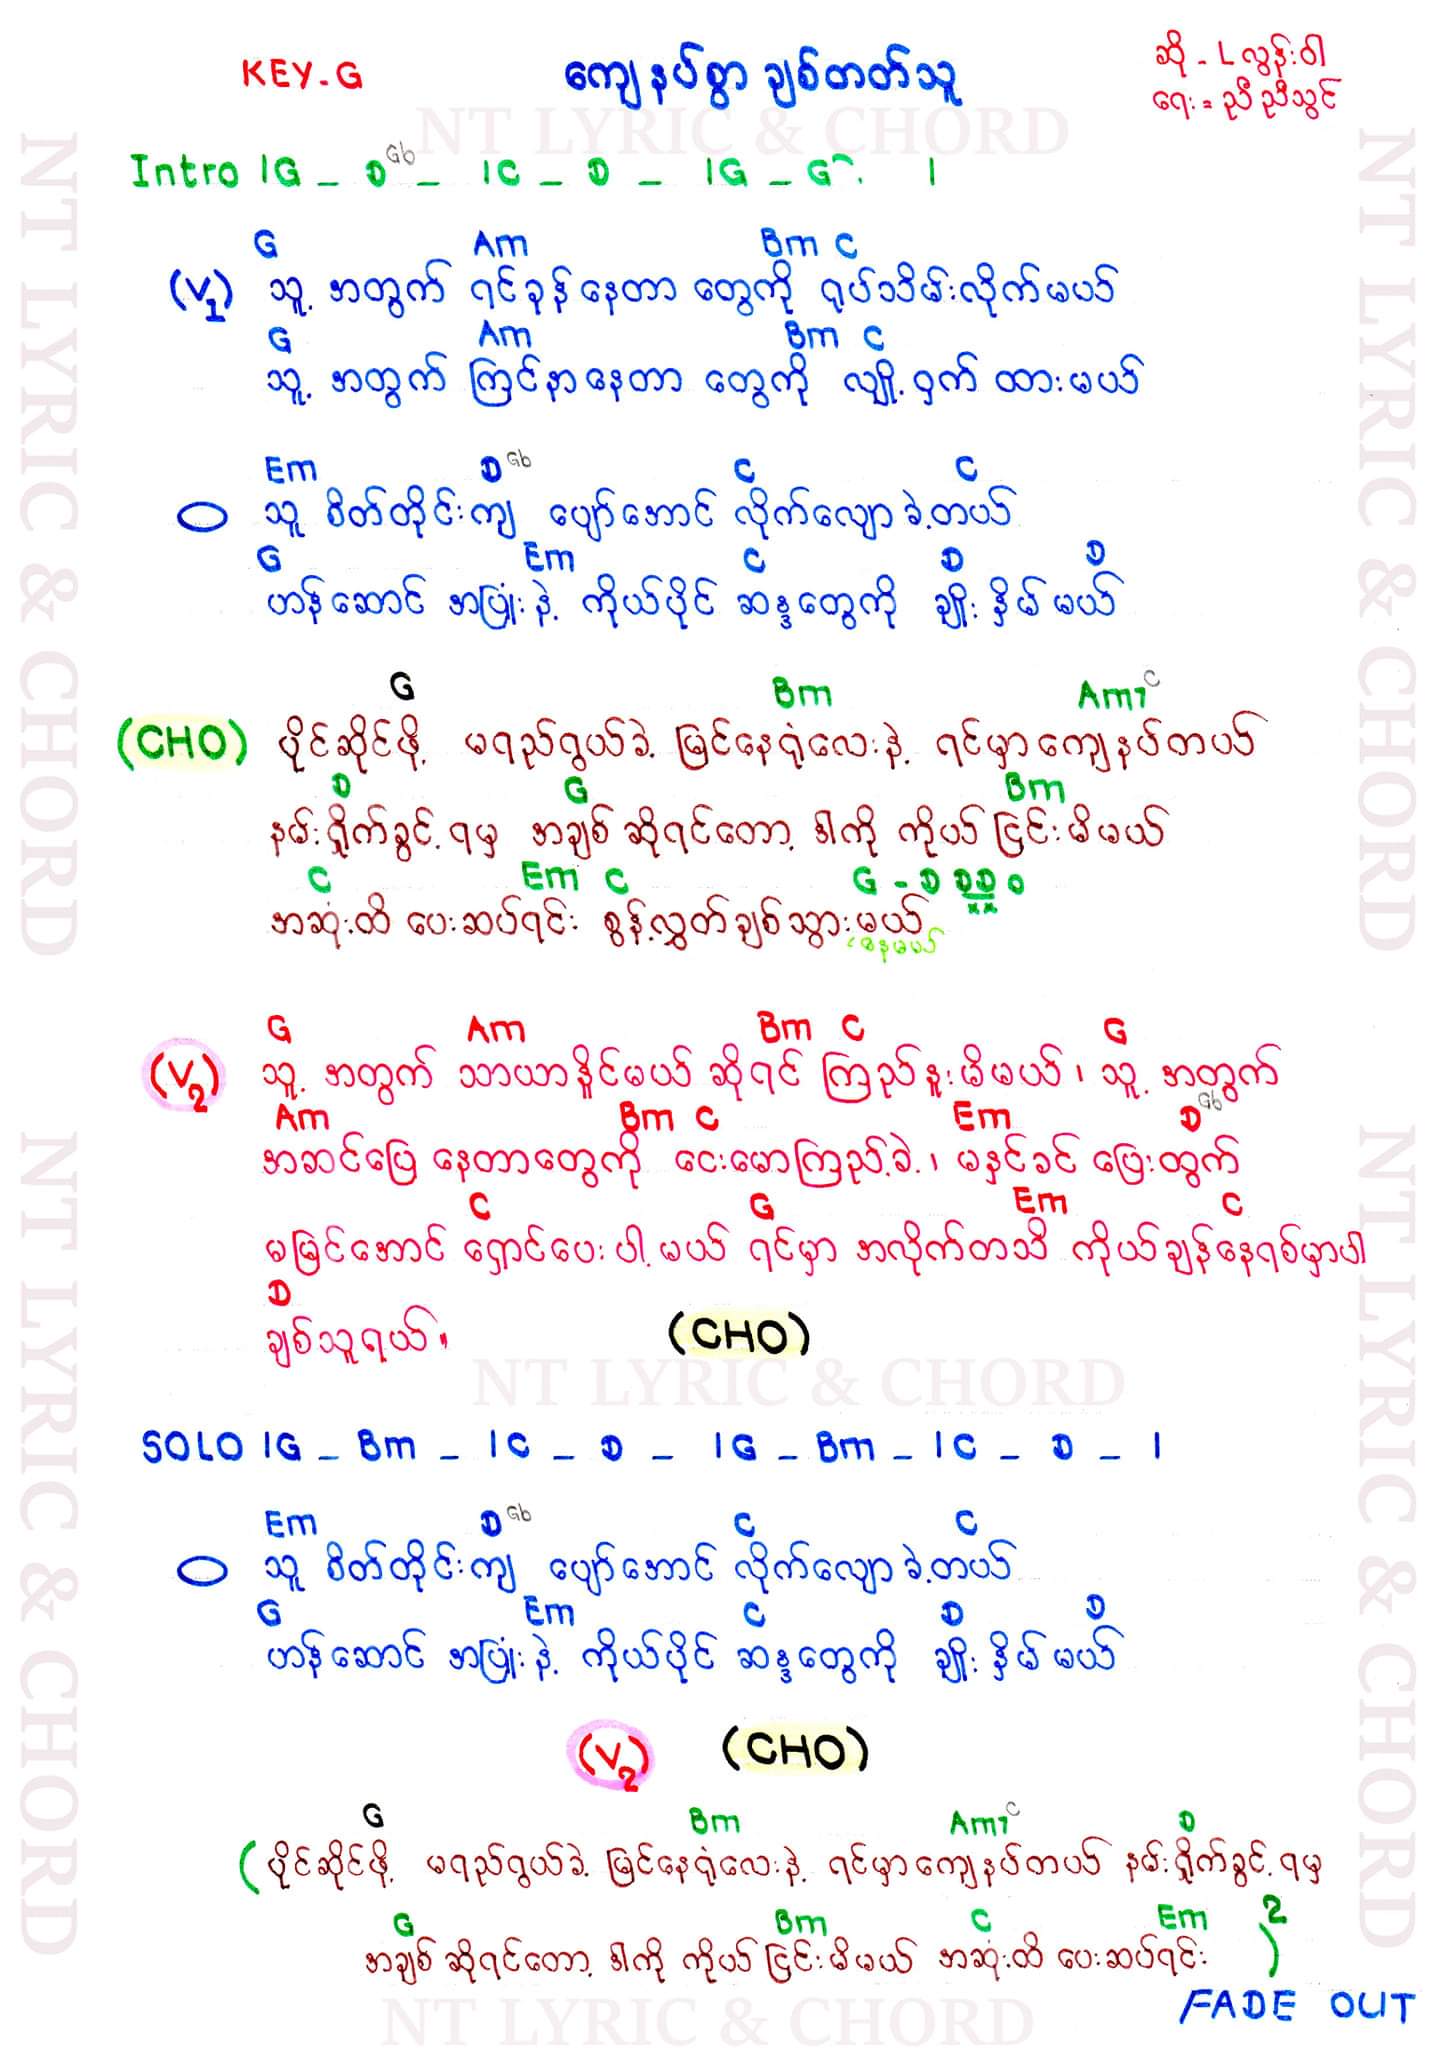 KEY-G
ကျေနပ်စွာ ချစ်တတ်သူ
ဆို - L လွန်းဝါ
ရေး = ညီညီသွင်
NT LYRIC & CHORD
Intro |G _ D Gb _ |C _ D _ |G _ G . |
G Am Bm C
(V1) သူ့ အတွက် ရင်ခုန်နေတာ တွေကို ရုပ်သိမ်းလိုက်မယ်
G Am Bm C
သူ့ အတွက် ကြင်နာနေတာ တွေကို လျှို့ဝှက် ထားမယ်
Em D Gb C C
သူ စိတ်တိုင်းကျ ပျော်အောင် လိုက်လျောခဲ့တယ်
G Em C D D
ဟန်ဆောင် အပြုံးနဲ့ ကိုယ်ပိုင် ဆန္ဒတွေကို ချိုးနှိမ်မယ်
G Bm Am7 C
(CHO) ပိုင်ဆိုင်ဖို့ မရည်ရွယ်ခဲ့ မြင်နေရုံလေးနဲ့ ရင်မှာကျေနပ်တယ်
D G Bm
နမ်းရှိုက်ခွင့်ရမှ အချစ်ဆိုရင်တော့ ဒါကို ကိုယ်ငြင်းမိမယ်
C Em C G - D DD D
အဆုံးထိ ပေးဆပ်ရင်း စွန့်လွှတ်ချစ်သွားမယ်
နေမယ်
G Am Bm C G
(V2) သူ့ အတွက် သာယာနိူင်မယ် ဆိုရင် ကြည်နူးမိမယ်၊ သူ့ အတွက်
Am Bm C Em D Gb
အဆင်ပြေ နေတာတွေကို ငေးမောကြည့်ခဲ့၊ မနှင်ခင် ပြေးထွက်
C G Em C
မမြင်အောင် ရှောင်ပေးပါ့မယ် ရင်မှာ အလိုက်တသိ ကိုယ်ချန်နေရစ်မှာပါ
D
ချစ်သူရယ်။ (CHO)
NT LYRIC & CHORD
SOLO |G _ Bm _ |C _ D _ |G _ Bm _ |C _ D _ |
Em D Gb C C
သူ စိတ်တိုင်းကျ ပျော်အောင် လိုက်လျောခဲ့တယ်
G Em C D D
ဟန်ဆောင် အပြုံးနဲ့ ကိုယ်ပိုင် ဆန္ဒတွေကို ချိုးနှိမ်မယ်
(V2) (CHO)
G Bm Am7 C D
(ပိုင်ဆိုင်ဖို့ မရည်ရွယ်ခဲ့ မြင်နေရုံလေးနဲ့ ရင်မှာကျေနပ်တယ် နမ်းရှိုက်ခွင့်ရမှ
G Bm C Em
အချစ်ဆိုရင်တော့ ဒါကို ကိုယ်ငြင်းမိမယ် အဆုံးထိ ပေးဆပ်ရင်း )2
FADE OUT
NT LYRIC & CHORD
NT LYRIC & CHORD
NT LYRIC & CHORD
NT LYRIC & CHORD
NT LYRIC & CHORD